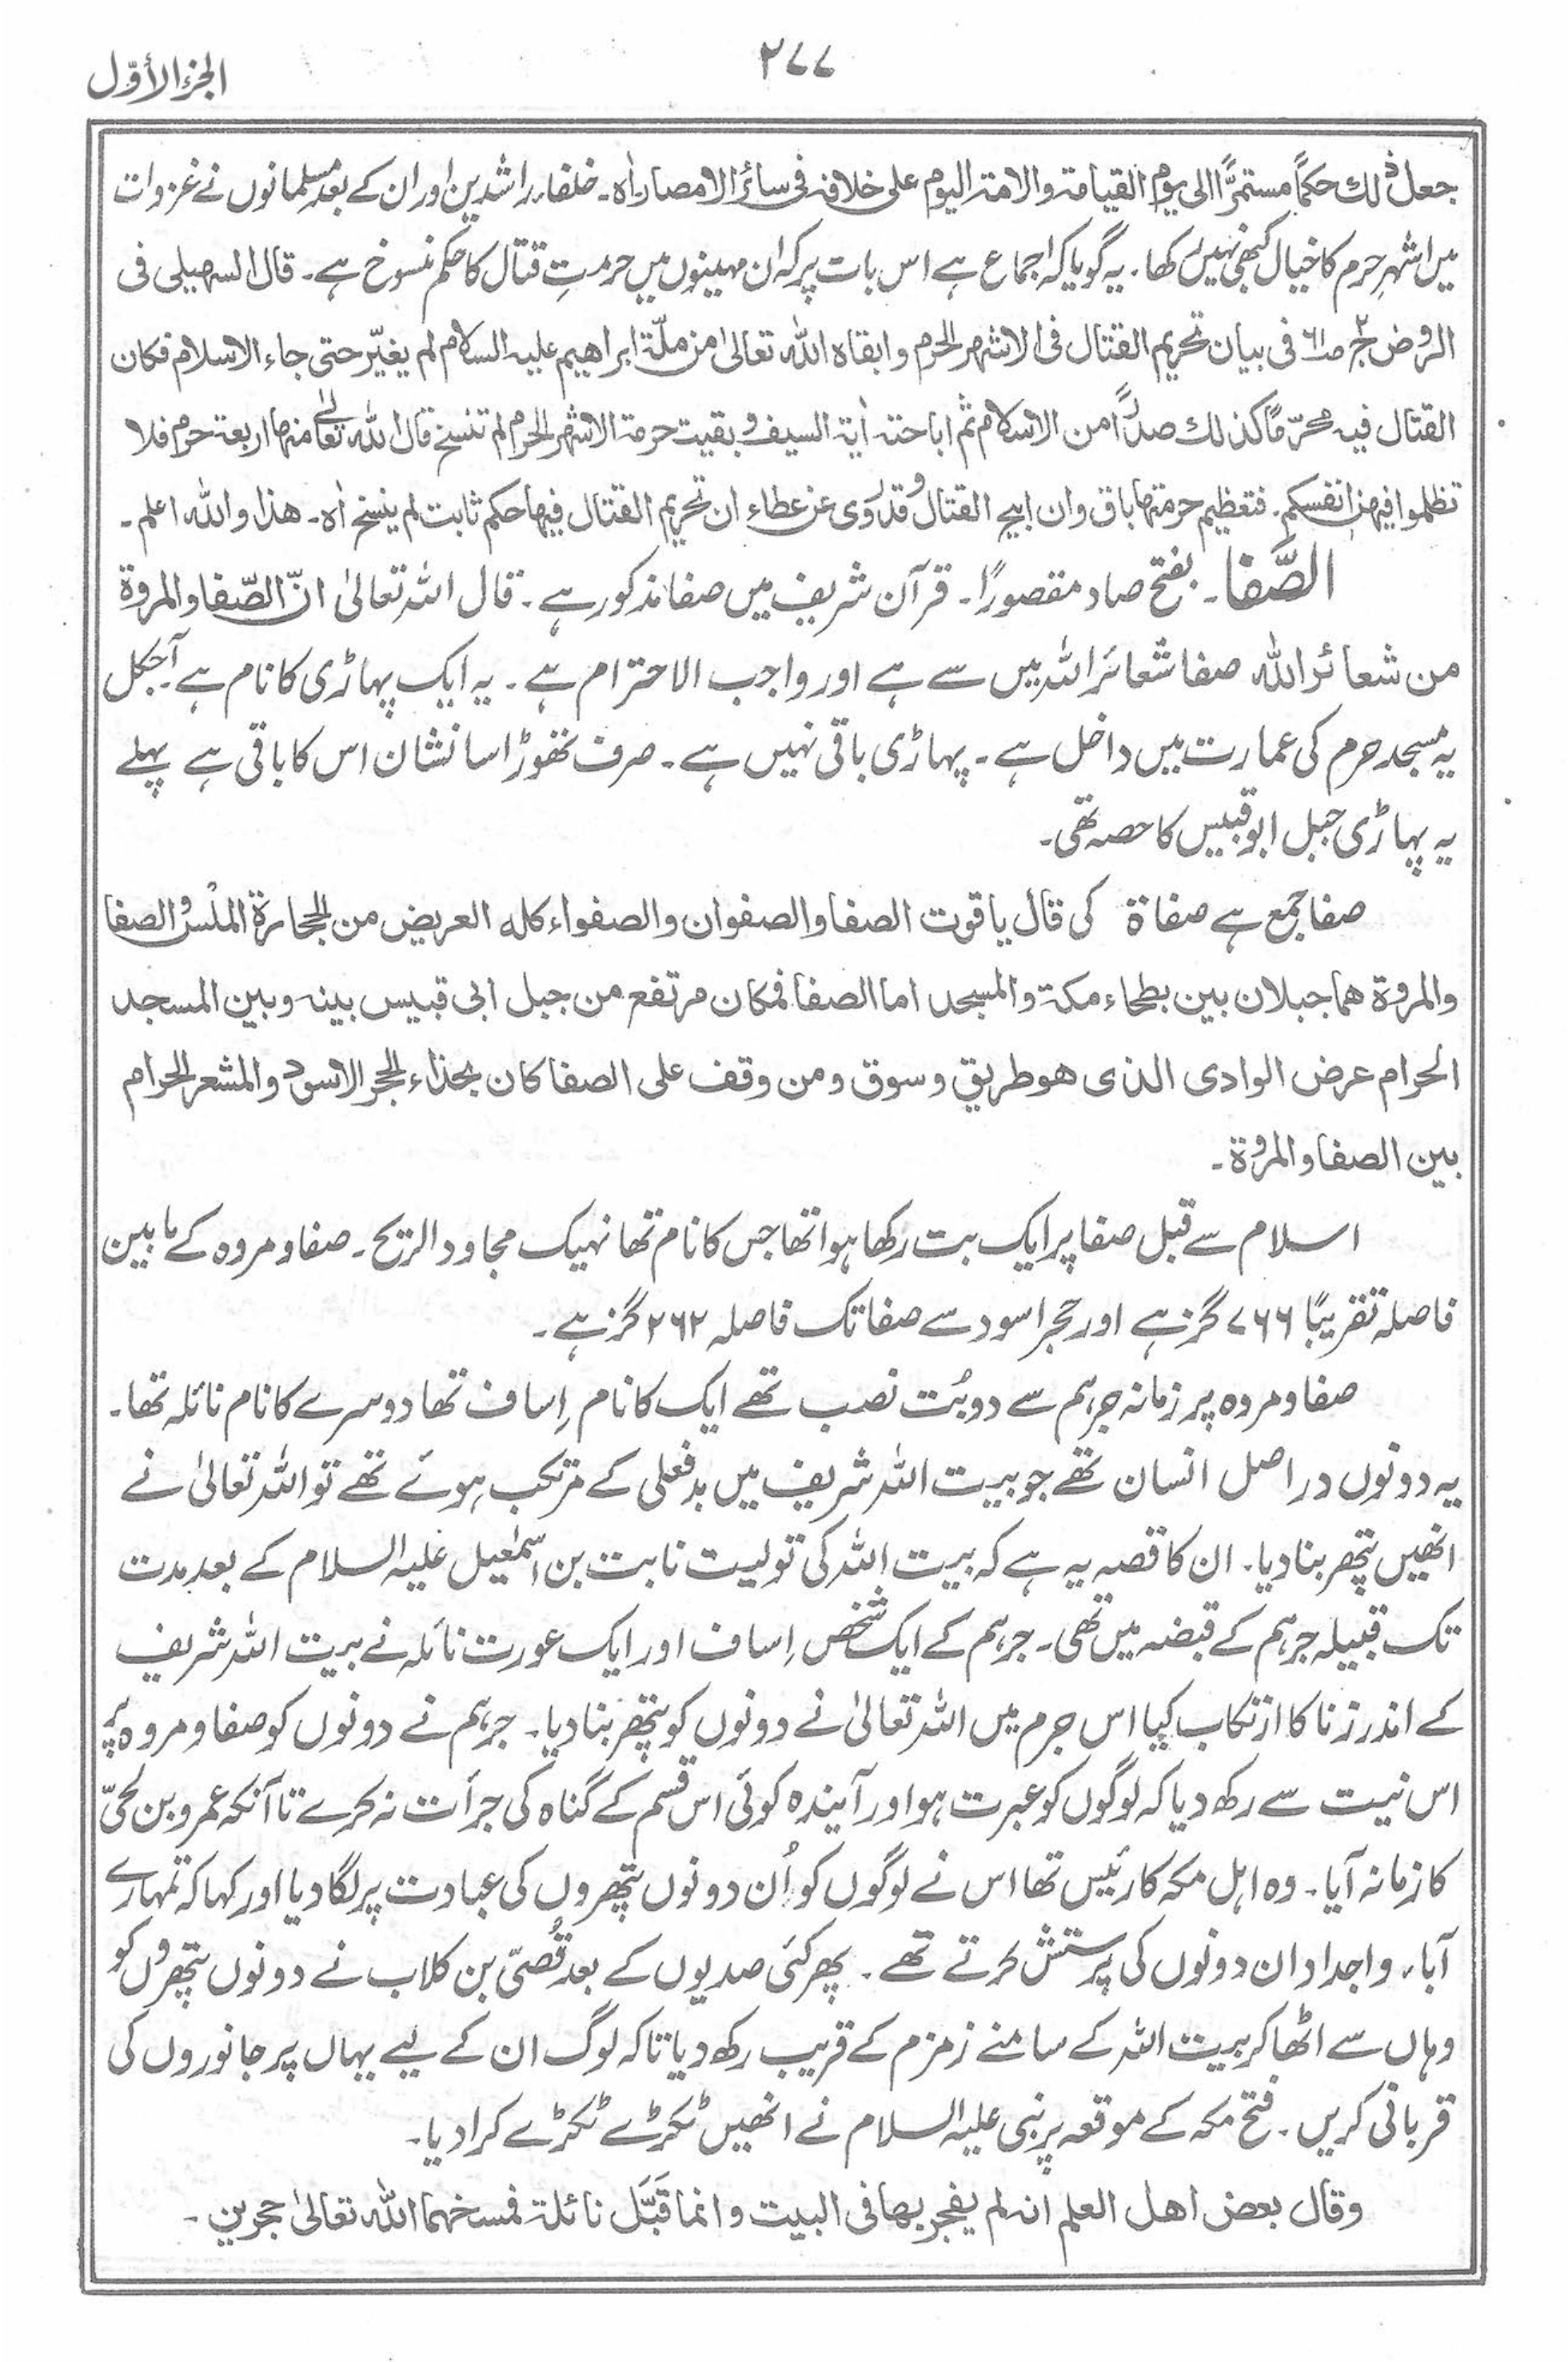 الجزء الأوّل
۲۷۷
جعل ذٰلك حكماً مستمرًّا الى يوم القيامة والامة اليوم على خلافه فى سائر الامصار اٰه۔ خلفاء راشدین اور ان کے بعد مسلمانوں نے غزوات
میں اشہر حرم کا خیال کبھی نہیں رکھا۔ یہ گویا کہ اجماع ہے اس بات پر کہ ان مہینوں میں حرمتِ قتال کا حکم منسوخ ہے۔ قال السهيلى فى
الروض ج۲ ص۶۱ فى بيان تحريم القتال فى الاشهر الحرم وابقاه الله تعالىٰ من ملّة ابراهيم عليه السلام لم يغيّر حتى جاء الاسلام فكان
القتال فيه محرّمًا كذلك صدرًا من الاسلام ثم اباحته اٰية السيف وبقيت حرمة الاشهر الحرم لم تنسخ قال الله تعالىٰ منها اربعة حرم فلا
تظلموا فيهن انفسكم۔ فتعظيم حرمتها باق وان ابيح القتال وقد روى عن عطاء ان تحريم القتال فيها حكم ثابت لم ينسخ اٰه۔ هذا والله اعلم۔
الصَّفا۔ بفتح صاد مقصورًا۔ قرآن شریف میں صفا مذکور ہے۔ قال اللہ تعالیٰ انّ الصّفا والمروة
من شعائر الله صفا شعائر اللہ میں سے ہے اور واجب الاحترام ہے۔ یہ ایک پہاڑی کا نام ہے۔ آجکل
یہ مسجد حرم کی عمارت میں داخل ہے۔ پہاڑی باقی نہیں ہے۔ صرف تھوڑا سا نشان اس کا باقی ہے پہلے
یہ پہاڑی جبل ابو قبیس کا حصہ تھی۔
صفا جمع ہے صفاة کی قال ياقوت الصفا والصفوان والصفواء كله العريض من الحجارة الملس والصفا
والمروة هما جبلان بين بطحاء مكة والمسجد اما الصفا فمكان مرتفع من جبل ابى قبيس بينه وبين المسجد
الحرام عرض الوادى الذى هو طريق وسوق ومن وقف على الصفا كان بحذاء الحجر الاسود والمشعر الحرام
بين الصفا والمروة۔
اسلام سے قبل صفا پر ایک بت رکھا ہوا تھا جس کا نام تھا نہیک مجاود الریح۔ صفا و مروہ کے مابین
فاصلہ تقریبًا ۷۶۶ گز ہے اور حجر اسود سے صفا تک فاصلہ ۲۶۲ گز ہے۔
صفا و مروہ پر زمانہ جرہم سے دو بُت نصب تھے ایک کا نام اِساف تھا دوسرے کا نام نائلہ تھا۔
یہ دونوں دراصل انسان تھے جو بیت اللہ شریف میں بدفعلی کے مرتکب ہوئے تھے تو اللہ تعالیٰ نے
انھیں پتھر بنا دیا۔ ان کا قصہ یہ ہے کہ بیت اللہ کی تولیت نابت بن اسمٰعیل علیہ السلام کے بعد مدت
تک قبیلہ جرہم کے قبضہ میں تھی۔ جرہم کے ایک شخص اِساف اور ایک عورت نائلہ نے بیت اللہ شریف
کے اندر زنا کا ارتکاب کیا اس جرم میں اللہ تعالیٰ نے دونوں کو پتھر بنا دیا۔ جرہم نے دونوں کو صفا و مروہ پر
اس نیت سے رکھ دیا کہ لوگوں کو عبرت ہو اور آیندہ کوئی اس قسم کے گناہ کی جرأت نہ کرے تا آنکہ عمرو بن لُحَیّ
کا زمانہ آیا۔ وہ اہل مکہ کا رئیس تھا اس نے لوگوں کو اُن دونوں پتھروں کی عبادت پر لگا دیا اور کہا کہ تمہارے
آباء واجداد ان دونوں کی پرستش کرتے تھے۔ پھر کئی صدیوں کے بعد قُصَیّ بن کلاب نے دونوں پتھروں کو
وہاں سے اٹھا کر بیت اللہ کے سامنے زمزم کے قریب رکھ دیا تاکہ لوگ ان کے لیے یہاں پر جانوروں کی
قربانی کریں۔ فتح مکہ کے موقعہ پر نبی علیہ السلام نے انھیں ٹکڑے ٹکڑے کرا دیا۔
وقال بعض اهل العلم انه لم يفجر بها فى البيت وانما قَبَّلَ نائلة فمسخهما الله تعالىٰ حجرين۔